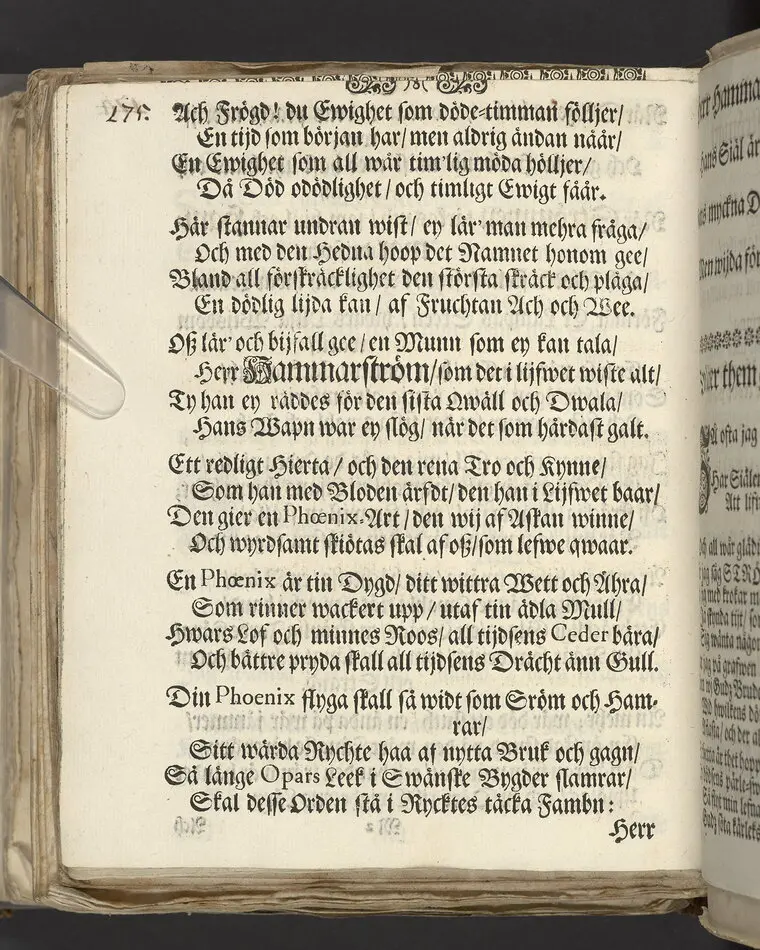 275.
Ach Frögd! du Ewighet som döde-timman följjer/
En tijd som början har/ men aldrig ändan nåår/
En Ewighet som all wår tim'lig möda höljjer/
Då Död odödlighet/ och timligt Ewigt fåår.
Här stannar undran wist/ ey lär' man mehra fråga/
Och med den Hedna hoop det Namnet honom gee/
Bland all förskräcklighet den största skräck och plåga/
En dödlig lijda kan/ af Fruchtan Ach och Wee.
Oß lär' och bijfall gee/ en Munn som ey kan tala/
Herr Hammarström/ som det i lijfwet wiste alt/
Ty han ey räddes för den sista Qwäll och Dwala/
Hans Wapn war ey slög/ när det som hårdast galt.
Ett redligt Hierta/ och den rena Tro och Kynne/
Som han med Bloden ärfdt/ den han i Lijfwet baar/
Den gier en Phœnix-Art/ den wij af Askan winne/
Och wyrdsamt skiötas skal af oß/ som lefwe qwaar.
En Phœnix är tin Dygd/ ditt wittra Wett och Ähra/
Som rinner wackert upp/ utaf tin ädla Mull/
Hwars Lof och minnes Roos/ all tijdsens Ceder bära/
Och bättre pryda skall all tijdsens Drächt änn Gull.
Din Phoenix flyga skall så widt som Sröm och Ham-
rar/
Sitt wärda Rychte haa af nytta Bruk och gagn/
Så länge Opars Leek i Swänske Bygder slamrar/
Skal desse Orden stå i Rycktes täcka Fambn:
Herr